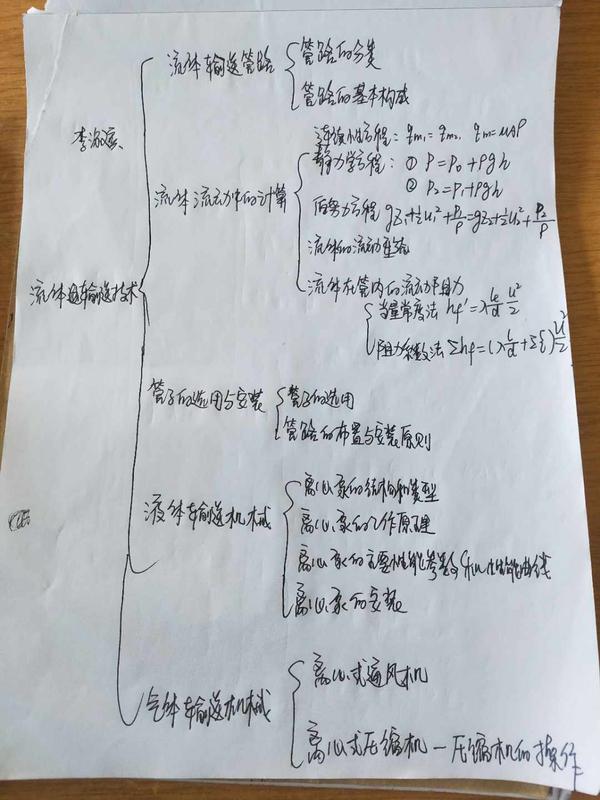 流体输送管路
管路的分类
管路的基本构成
李
流体流动中的计算
连续性方程：qm₁=qm₂ qm=uAρ
静力学方程：① P=P₀+ρgh
② P₂=P₁+ρgh
伯努力方程 gZ₁+½u₁²+P₁/ρ=gZ₂+½u₂²+P₂/ρ
流体的流动型态
流体在管内的流动阻力
当量常度法 hf'=λ le/d u²/2
阻力系数法 Σhf=(λ l/d+Σξ)u²/2
流体输送技术
管子的选用与安装
管子的选用
管路的布置与安装原则
液体输送机械
离心泵的结构和类型
离心泵的工作原理
离心泵的主要性能参数和性能曲线
离心泵的安装
气体输送机械
离心式通风机
离心式压缩机—压缩机的操作